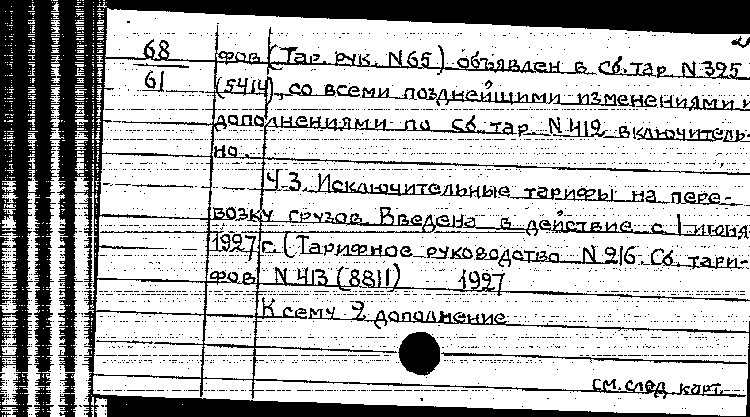 68
61
фов (Тар. рук. N 65) объявлен в Сб. тар. N 395
(5414), со всеми позднейшими изменениями и
дополнениями по Сб. тар. N 412 включитель-
но.
Ч 3. Исключительные тарифы на пере-
возку грузов. Введена в действие с 1 июня
1927 г. (Тарифное руководство N 216. Сб. тари-
фов N 413 (8811) 1927
К сему 2 дополнение
см. след. карт.